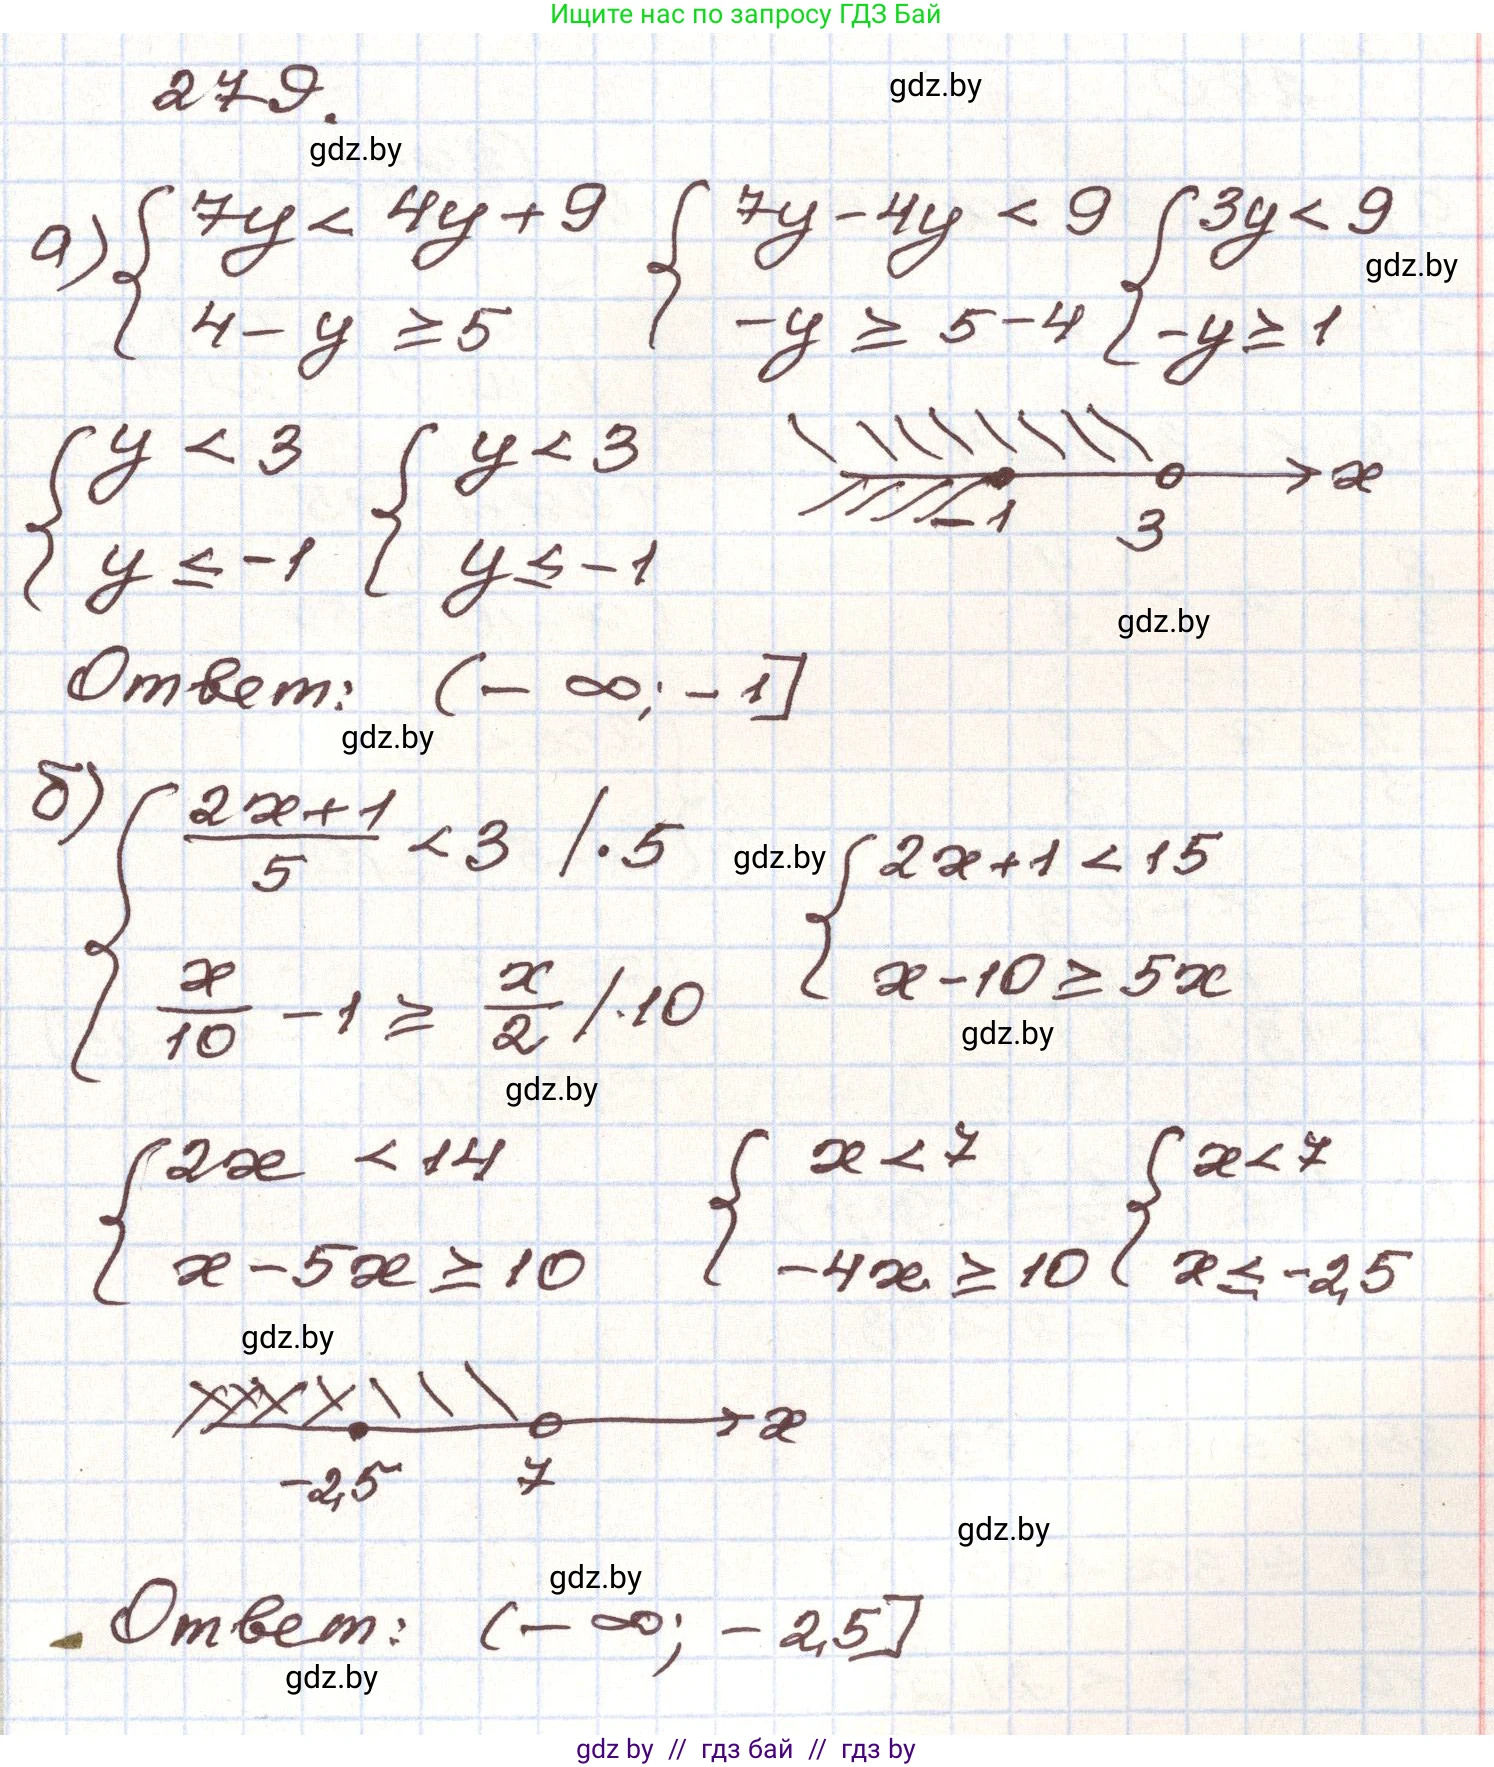 Ищите нас по запросу ГДЗ Бай
279.
gdz.by
gdz.by
а) { 7y < 4y + 9 { 7y - 4y < 9 { 3y < 9
gdz.by
4 - y ≥ 5 -y ≥ 5 - 4 -y ≥ 1
{ y < 3 { y < 3
y ≤ -1 y ≤ -1
-1 3 x
gdz.by
Ответ: (-∞; -1]
gdz.by
б) { (2x+1)/5 < 3 /·5 { 2x+1 < 15
gdz.by
x/10 - 1 ≥ x/2 /·10 x - 10 ≥ 5x
gdz.by
gdz.by
{ 2x < 14 { x < 7 { x < 7
x - 5x ≥ 10 -4x ≥ 10 x ≤ -2,5
gdz.by
-2,5 7 x
gdz.by
gdz.by
Ответ: (-∞; -2,5]
gdz.by
gdz by // гдз бай // гдз by